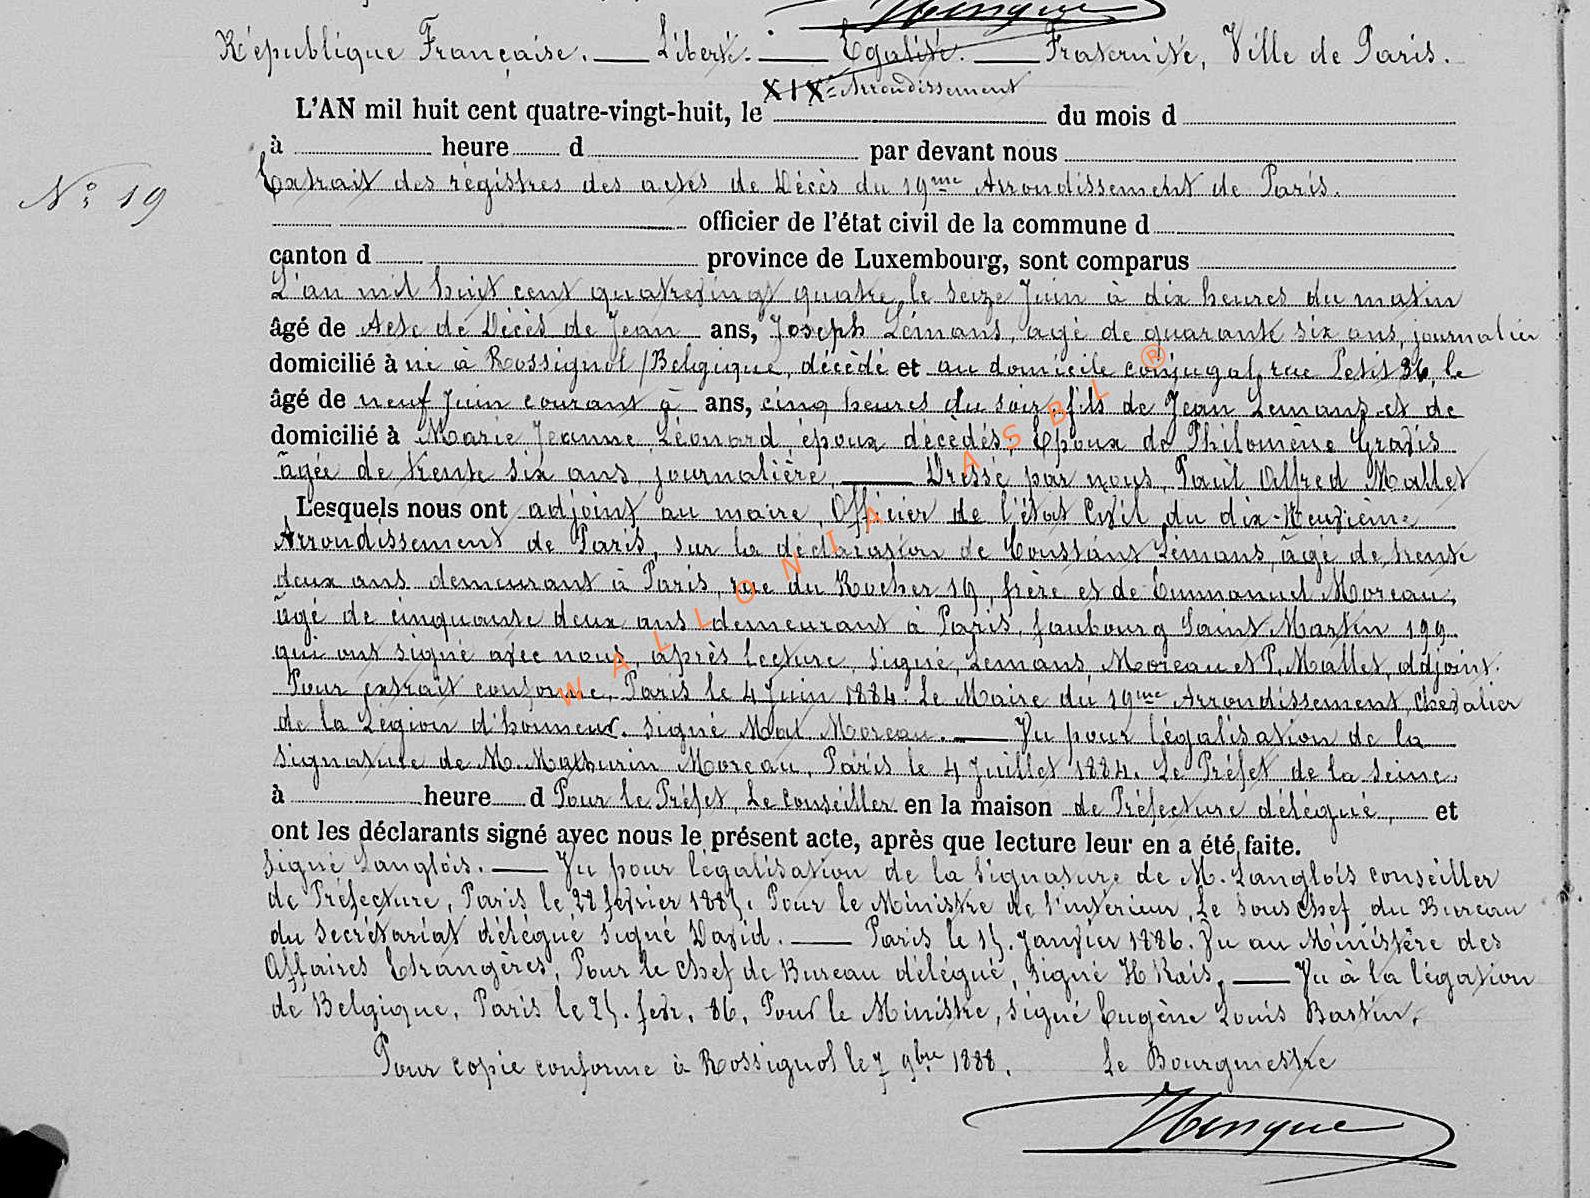 République Française. — Liberté. — Egalité. — Fraternité, Ville de Paris.
XIXe Arrondissement
L'AN mil huit cent quatre-vingt-huit, le du mois d
à heure d par devant nous
N° 19
Extrait des régistres des actes de Décès du 19me Arrondissement de Paris.
officier de l'état civil de la commune d
canton d province de Luxembourg, sont comparus
L'an mil huit cent quatrevingt quatre, le seize Juin à dix heures du matin
âgé de Acte de Décès de Jean ans, Joseph Lémans, agé de quarante six ans, journalier
domicilié à né à Rossignol /Belgique, décèdé et au domicile conjugal, rue Petit 36, le
âgé de neuf Juin courant à ans, cinq heures du soir, fils de Jean Lemans et de
domicilié à Marie Jeanne Léonard époux décèdés. Epoux de Philomène Gravis
âgée de trente six ans, journalière, — Dressé par nous, Paul Alfred Mallet
Lesquels nous ont adjoint au maire, Officier de l'état Civil du dix-Neuvième
Arrondissement de Paris, sur la déclaration de Constant Lémans, âgé de trente
deux ans demeurant à Paris, rue du Rocher 19, frère et de Emmanuel Moreau,
âgé de cinquante deux ans demeurant à Paris, faubourg Saint Martin 199
qui ont signé avec nous, après lecture, signé, Lemans, Moreau et P. Mallet, adjoint.
Pour extrait conforme, Paris le 4 Juin 1884. Le Maire du 19me Arrondissement, Chevalier
de la Légion d'honneur. signé Mat. Moreau. — Vu pour légalisation de la
signature de M. Mathurin Moreau, Paris le 4 Juillet 1884. Le Préfet de la Seine.
à heure d Pour le Préfet, Le Conseiller en la maison de Préfecture délégué, et
ont les déclarants signé avec nous le présent acte, après que lecture leur en a été faite.
signé Langlois. — Vu pour légalisation de la signature de M. Langlois conseiller
de Préfecture, Paris le 28 février 1885. Pour le Ministre de l'intérieur, Le sous Chef du Bureau
du secrétariat délégué signé David. — Paris le 15. Janvier 1886. Vu au Ministère des
Affaires Etrangères, Pour le Chef de Bureau délégué, signé H Rais, — Vu à la légation
de Belgique, Paris le 25. fevr. 86, Pour le Ministre, signé Eugène Louis Bastin.
Pour copie conforme à Rossignol le 7 9bre 1888. Le Bourgmestre
Hengue
WALLONIA ASBL ®